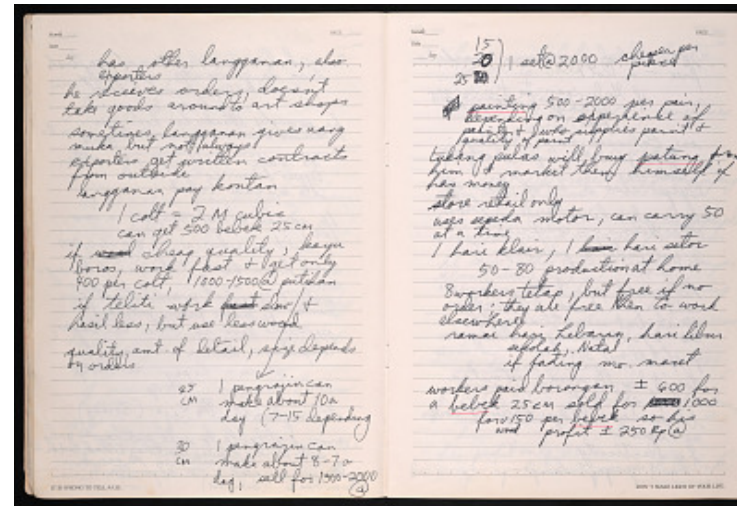 has other langganan, also
exporters
he receives orders, doesn't
take goods around to art shops
sometimes, langganan gives uang
muka but not always
exporters get written contracts
from outside
langganan pay kontan
1 colt = 2 M cubic
can get 500 bebek 25 cm
if cheap quality, kayu
boros, work fast + get only
400 per colt, 1000-1500@ putihan
if teliti work slow, +
hasil less, but use less wood
quality, amt. of detail, size depends
on orders
25 cm 1 pengrajin can
make about 10 a
day (7-15 depending
30 cm 1 pengrajin can
make about 8-7 a
day, sell for 1500-2000
@
15
20
25
1 set @ 2000 cheaper per
painting 500-2000 per pair,
depending on experience of
painter + who supplies paint +
quality of paint
tukang pulas will buy patung from
him + market them himself if
has money
store retail only
uses sepeda motor, can carry 50
at a time
1 hari klair, 1 hari setor
50-80 production at home
8 workers tetap, but free if no
order; they are free then to work
elsewhere
ramai hari Lebaran, hari libur
sekolah, Natal
if fading mo. maret
workers paid borongan, ± 600 for
a bebek 25 cm sold for 1000
for 150 per bebek so his
wood profit ± 250 Rp @